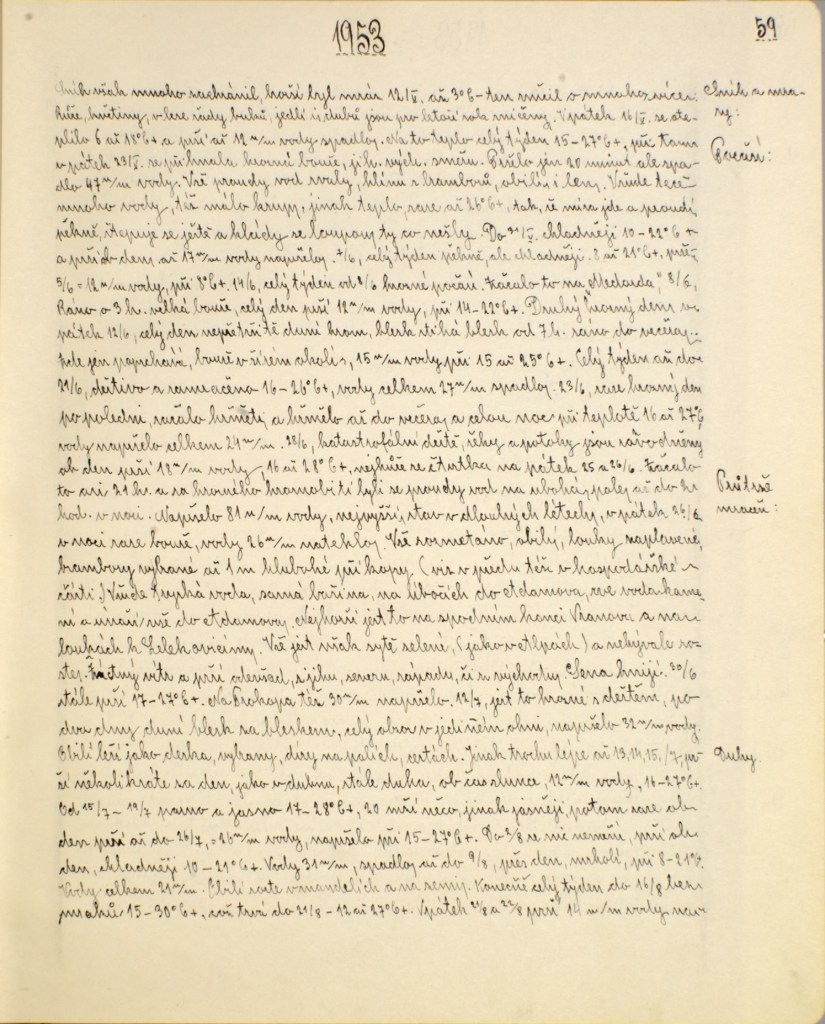 1953
59
Sníh však mnoho zachránil, horší byl mráz 12/V. až 3°C- ten zničil o mnoho více:
Sníh a mrazy:
růže, květiny, v lese řady buků, jedlí i dubů jsou pro letošní rok zničeny. V pátek 16/V. se ote-
plilo 6 až 18°C+ a prší až 12 m/m vody spadlo. Na to teplo celý týden 15-27°C+, při tom
v pátek 23/V. se přihnala hrozná bouře, jih. vých. směru. Pršelo jen 20 minut ale spa-
Počasí:
dlo 47 m/m vody. Vše proudy vod rvaly, hlínu s bramborů, obilí i len. Všude teče
mnoho vody, též málo krup, jinak teplo zase až 26°C+, tak, že míza jde a proudí
pěkně, štěpuje se ještě a klády se loupou ty co nešly. Do 31/V. chladněji 10-22°C+
a prší ob den, až 17 m/m vody napršelo. 7/6, celý týden pěkně, ale chladněji. 8 až 21°C+, prší
5/6 = 12 m/m vody, při 8°C+. 14/6, celý týden od 8/6 hrozné počasí. Začalo to na „Medarda" 8/6,
Ráno o 3 h. velká bouře, celý den prší 12 m/m vody, při 14-22°C+. Druhý hrozný den v
pátek 12/6, celý den nepřetržitě duní hrom, blesk stíhá blesk od 7 h. ráno do večera.
kde jen poprchává, bouře v širém okolí, 15 m/m vody při 15 až 25°C+. Celý týden až do
21/6, deštivo a zamračeno 16-26°C+, vody celkem 27 m/m spadlo. 23/6, zase hrozný den
po poledni, začalo hřměti, a hřmělo až do večera a celou noc při teplotě 16 až 27°C
vody napršelo celkem 24 m/m. 28/6, katastrofální deště, řeky a potoky jsou rozvodněny
ob den prší 18 m/m vody, 16 až 28°C+, nejhůře ze čtvrtka na pátek 25 a 26/6. Začalo
to asi 21 h. a za hrozného hromobití lily se proudy vod na ubohá pole, až do 2
Průtrž mračen:
hod. v noci. Napršelo 81 m/m vody, nejvyšší stav v dlouhých letech, v pátek 26/6
v noci zase bouře, vody 26 m/m nateklo. Vše rozmetáno, obilí, louky zaplavené,
brambory vyrvané až 1 m hluboké příkopy, (viz v předu též v hospodářské
části.) Všude tryská voda, samá bařina, na úbočích do Adamova, rve voda kame-
ní a unáší vše do Adamova. Nejhorší jest to na spodním konci Vranova a na
loukách k Lelekovicím. Vše jest však sytě zelené, (jako v Alpách) a nebývale ro-
ste. Žádný vítr a prší odevšad, z jihu, severu, západu, či z východu. Sena hnijí. 30/6
stále prší 17-27°C+. Na Prokopa též 30 m/m napršelo. 12/7, jest to hrozné s deštěm, po
dva dny duní blesk za bleskem, celý obzor v jediném ohni, napršelo 32 m/m vody.
Obilí leží jako deska, vyrvané díry na polích, cestách. Jinak trochu lépe až 13,14,15,/7, pr-
Duhy.
ší několikráte za den, jako v dubnu, stále duha, občas slunce, 12 m/m vody, 16-27°C+.
Od 15/7 - 19/7 parno a jasno 17-28°C+, 20 mží něco, jinak jasněji, potom zase ob-
den prší až do 26/7, = 26 m/m vody, napršelo při 15-27°C+. Do 3/8 se nic nemění, prší ob-
den, chladněji 10-21°C+. Vody 31 m/m, spadlo, až do 9/8, přes den, mrholí, při 8-21°C.
Vody celkem 21 m/m. Obilí roste v mandelích a na zemi. Konečně celý týden do 16/8 bez
mraků 15-30°C+, což trvá do 21/8 - 12 až 27°C+. V pátek 21/8 a 22/8 prší 14 m/m vody na-